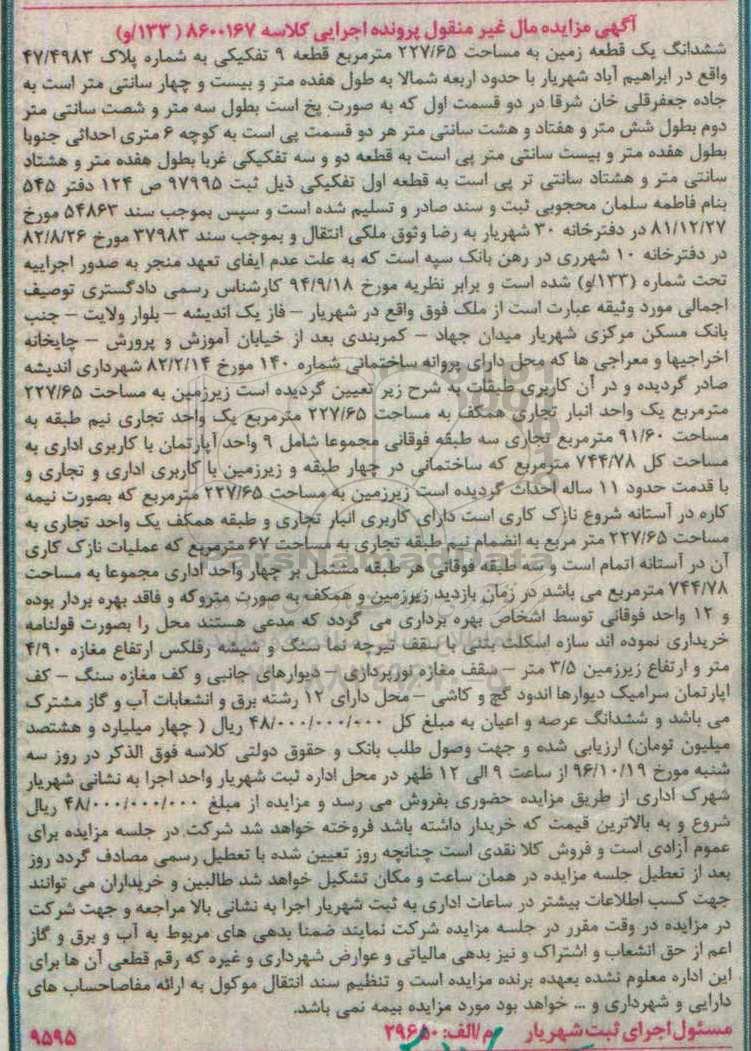 آگهی مزایده مال غیر منقول پرونده اجرایی کلاسه ۸۶۰۰۱۶۷ ( ۱۳۳/و)
ششدانگ یک قطعه زمین به مساحت ۲۲۷/۶۵ مترمربع قطعه ۹ تفکیکی به شماره پلاک ۴۷/۴۹۸۳
واقع در ابراهیم آباد شهریار با حدود اربعه شمالا به طول هفده متر و بیست و چهار سانتی متر است به
جاده جعفرقلی خان شرقا در دو قسمت اول که به صورت پخ است بطول سه متر و شصت سانتی متر
دوم بطول شش متر و هفتاد و هشت سانتی متر هر دو قسمت پی است به کوچه ۶ متری احداثی جنوبا
بطول هفده متر و بیست سانتی متر پی است به قطعه دو و سه تفکیکی غربا بطول هفده متر و هشتاد
سانتی متر و هشتاد سانتی تر پی است به قطعه اول تفکیکی ذیل ثبت ۹۷۹۹۵ ص ۱۲۴ دفتر ۵۴۵
بنام فاطمه سلمان محجوبی ثبت و سند صادر و تسلیم شده است و سپس بموجب سند ۵۴۸۶۳ مورخ
۸۱/۱۲/۲۷ در دفترخانه ۳۰ شهریار به رضا وثوق ملکی انتقال و بموجب سند ۳۷۹۸۳ مورخ ۸۲/۸/۲۶
در دفترخانه ۱۰ شهرری در رهن بانک سپه است که به علت عدم ایفای تعهد منجر به صدور اجراییه
تحت شماره (۱۳۳/و) شده است و برابر نظریه مورخ ۹۴/۹/۱۸ کارشناس رسمی دادگستری توصیف
اجمالی مورد وثیقه عبارت است از ملک فوق واقع در شهریار – فاز یک اندیشه – بلوار ولایت – جنب
بانک مسکن مرکزی شهریار میدان جهاد – کمربندی بعد از خیابان آموزش و پرورش – چایخانه
اخراجیها و معراجی ها که محل دارای پروانه ساختمانی شماره ۱۴۰ مورخ ۸۲/۲/۱۴ شهرداری اندیشه
صادر گردیده و در آن کاربری طبقات به شرح زیر تعیین گردیده است زیرزمین به مساحت ۲۲۷/۶۵
مترمربع یک واحد انبار تجاری همکف به مساحت ۲۲۷/۶۵ مترمربع یک واحد تجاری نیم طبقه به
مساحت ۹۱/۶۰ مترمربع تجاری سه طبقه فوقانی مجموعا شامل ۹ واحد آپارتمان با کاربری اداری به
مساحت کل ۷۴۴/۷۸ مترمربع که ساختمانی در چهار طبقه و زیرزمین با کاربری اداری و تجاری و
با قدمت حدود ۱۱ ساله احداث گردیده است زیرزمین به مساحت ۲۲۷/۶۵ مترمربع که بصورت نیمه
کاره در آستانه شروع نازک کاری است دارای کاربری انبار تجاری و طبقه همکف یک واحد تجاری به
مساحت ۲۲۷/۶۵ متر مربع به انضمام نیم طبقه تجاری به مساحت ۶۷ مترمربع که عملیات نازک کاری
آن در آستانه اتمام است و سه طبقه فوقانی هر طبقه مشتمل بر چهار واحد اداری مجموعا به مساحت
۷۴۴/۷۸ مترمربع می باشد در زمان بازدید زیرزمین و همکف به صورت متروکه و فاقد بهره بردار بوده
و ۱۲ واحد فوقانی توسط اشخاص بهره برداری می گردد که مدعی هستند محل را بصورت قولنامه
خریداری نموده اند سازه اسکلت بتنی با سقف تیرچه نما سنگ و شیشه رفلکس ارتفاع مغازه ۴/۹۰
متر و ارتفاع زیرزمین ۳/۵ متر – سقف مغازه نورپردازی – دیوارهای جانبی و کف مغازه سنگ – کف
اپارتمان سرامیک دیوارها اندود گچ و کاشی – محل دارای ۱۲ رشته برق و انشعابات آب و گاز مشترک
می باشد و ششدانگ عرصه و اعیان به مبلغ کل ۴۸/۰۰۰/۰۰۰/۰۰۰ ریال ( چهار میلیارد و هشتصد
میلیون تومان) ارزیابی شده و جهت وصول طلب بانک و حقوق دولتی کلاسه فوق الذکر در روز سه
شنبه مورخ ۹۶/۱۰/۱۹ از ساعت ۹ الی ۱۲ ظهر در محل اداره ثبت شهریار واحد اجرا به نشانی شهریار
شهرک اداری از طریق مزایده حضوری بفروش می رسد و مزایده از مبلغ ۴۸/۰۰۰/۰۰۰/۰۰۰ ریال
شروع و به بالاترین قیمت که خریدار داشته باشد فروخته خواهد شد شرکت در جلسه مزایده برای
عموم آزادی است و فروش کلا نقدی است چنانچه روز تعیین شده با تعطیل رسمی مصادف گردد روز
بعد از تعطیل جلسه مزایده در همان ساعت و مکان تشکیل خواهد شد طالبین و خریداران می توانند
جهت کسب اطلاعات بیشتر در ساعات اداری به ثبت شهریار اجرا به نشانی بالا مراجعه و جهت شرکت
در مزایده در وقت مقرر در جلسه مزایده شرکت نمایند ضمنا بدهی های مربوط به آب و برق و گاز
اعم از حق انشعاب و اشتراک و نیز بدهی مالیاتی و عوارض شهرداری و غیره که رقم قطعی آن ها برای
این اداره معلوم نشده بعهده برنده مزایده است و تنظیم سند انتقال موکول به ارائه مفاصاحساب های
دارایی و شهرداری و ... خواهد بود مورد مزایده بیمه نمی باشد.
مسئول اجرای ثبت شهریار م/الف: ۲۹۶۵۰ ۹۵۹۵